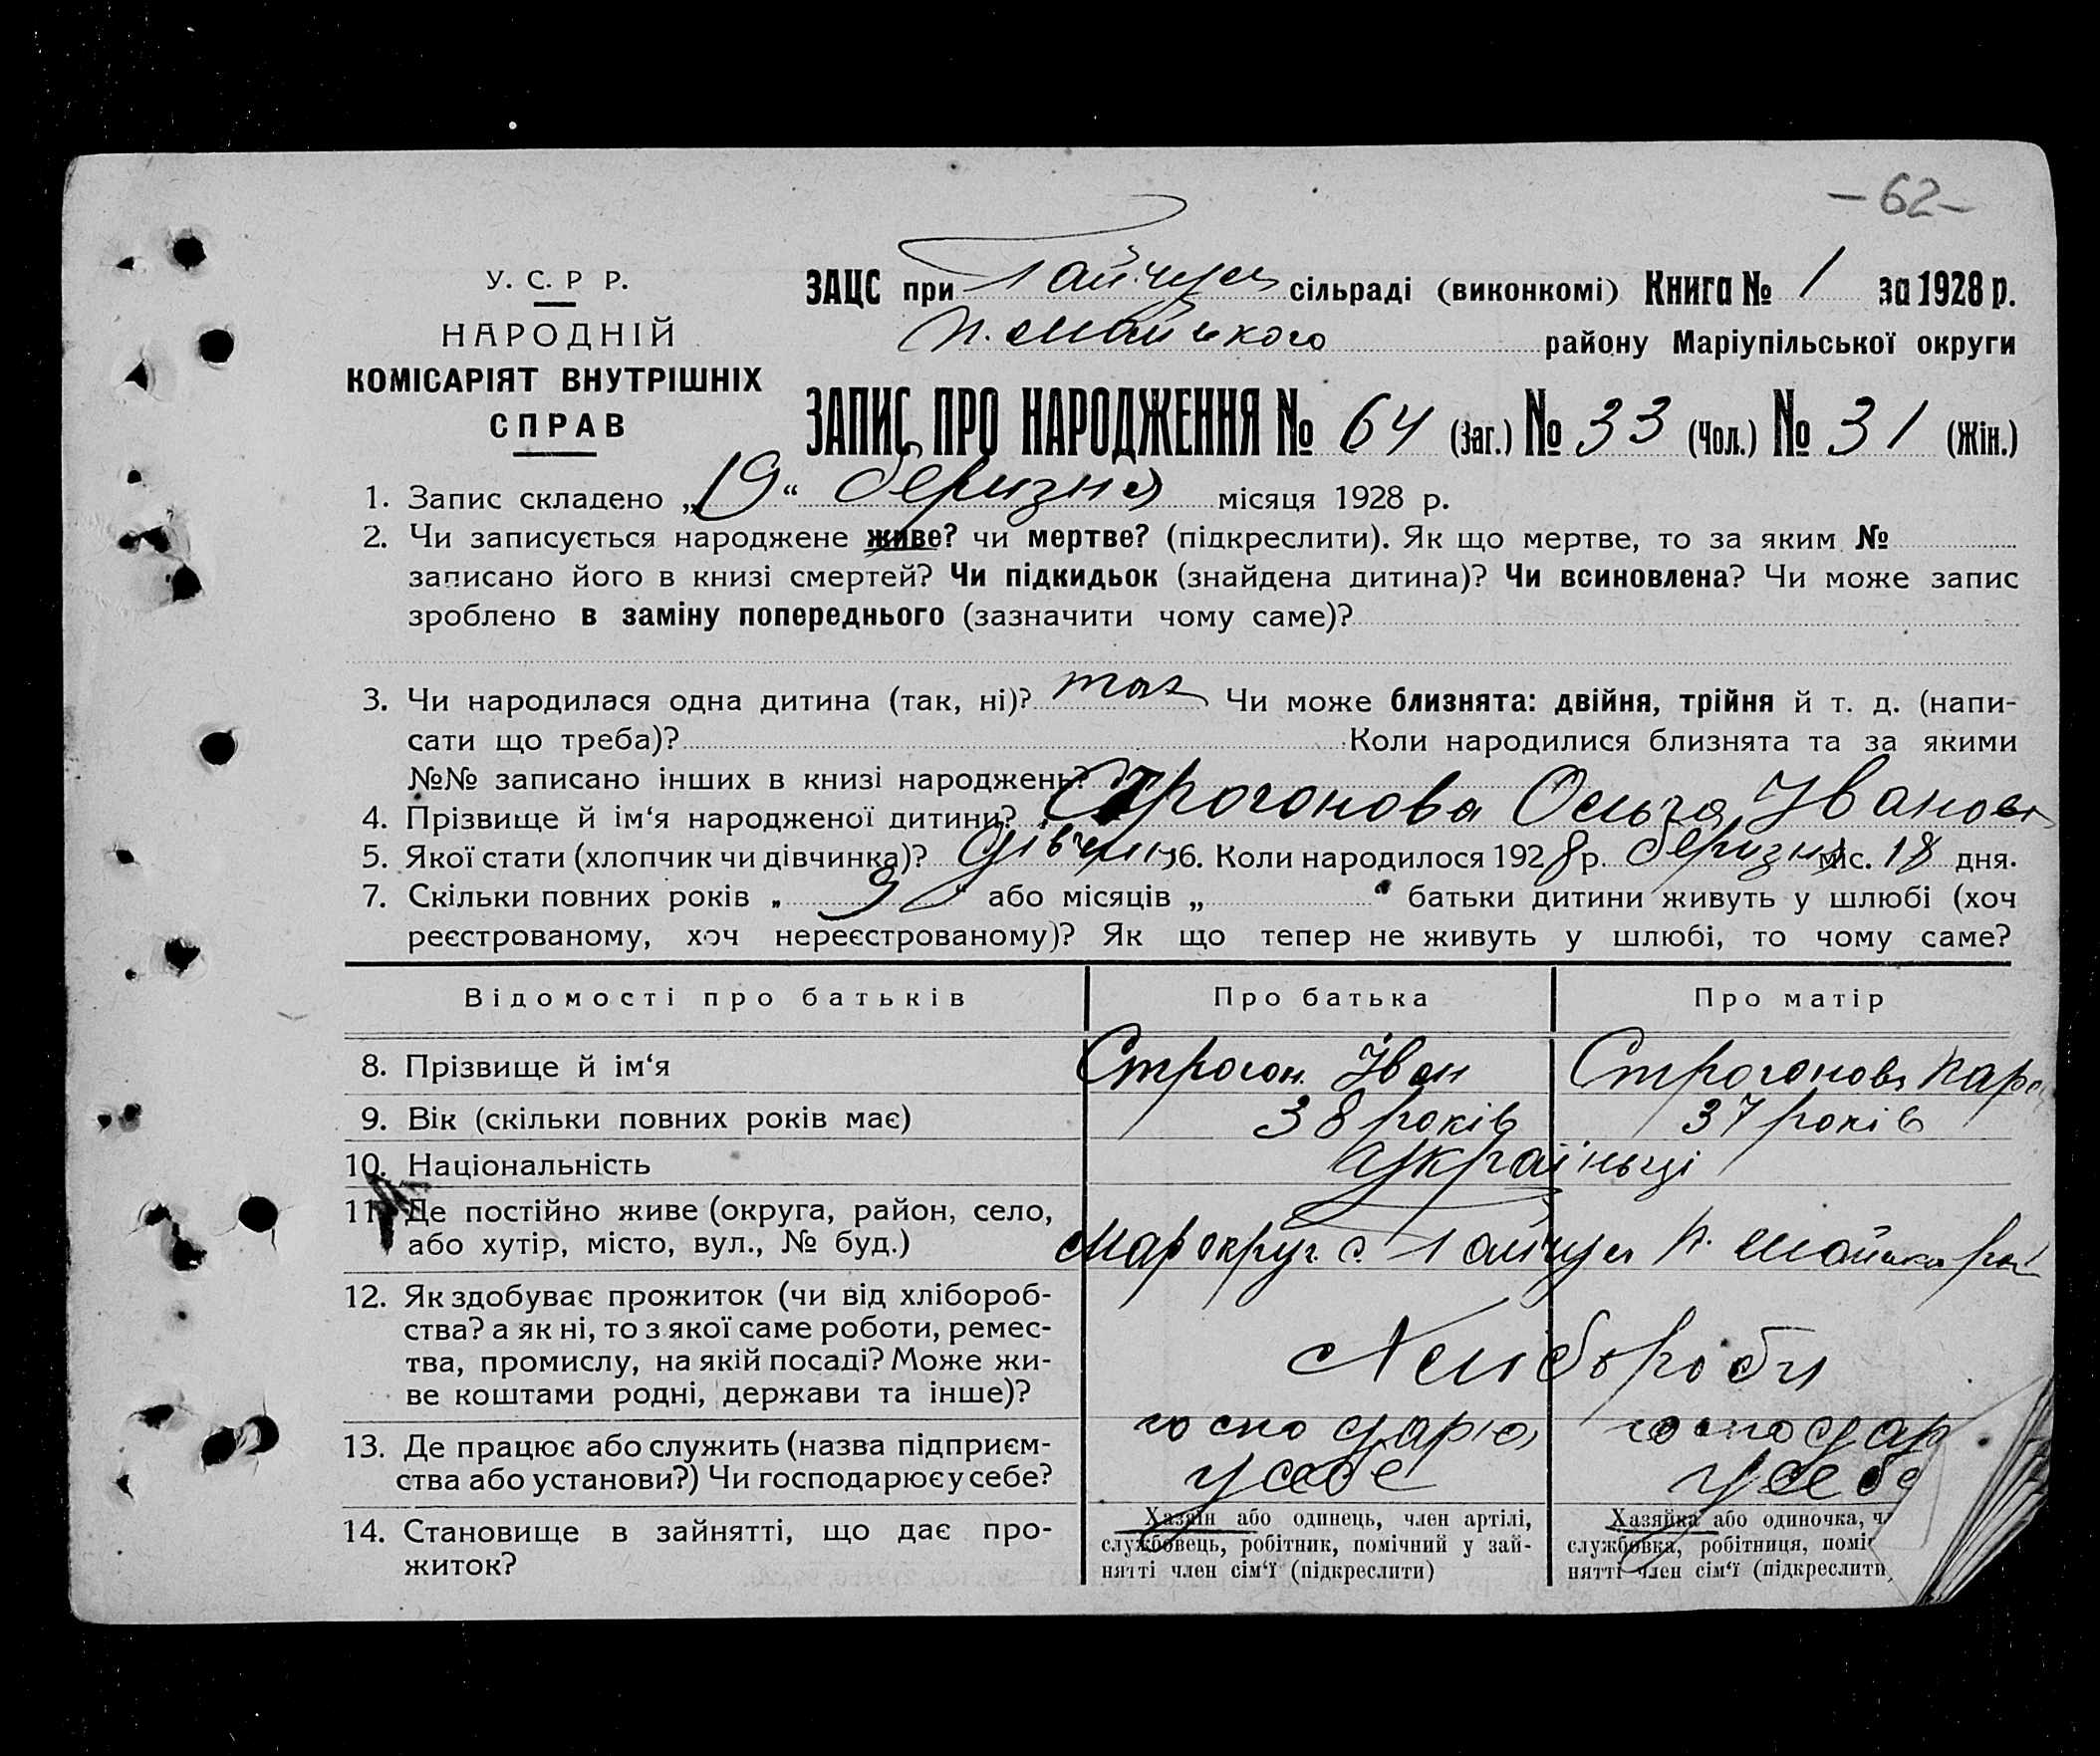 -62-
У. С. Р Р.
НАРОДНІЙ
КОМІСАРІЯТ ВНУТРІШНІХ
СПРАВ
ЗАЦС при Гайчул сільраді (виконкомі) Книга № 1 за 1928 р.
району Маріупільської округи
ЗАПИС ПРО НАРОДЖЕННЯ № 64 (Заг.) № 33 (Чол.) № 31 (Жін.)
1. Запис складено „19“ березня місяця 1928 р.
2. Чи записується народжене живе? чи мертве? (підкреслити). Як що мертве, то за яким №
записано його в книзі смертей? Чи підкидьок (знайдена дитина)? Чи всиновлена? Чи може запис
зроблено в заміну попереднього (зазначити чому саме)?
3. Чи народилася одна дитина (так, ні)? так Чи може близнята: двійня, трійня й т. д. (напи-
сати що треба)? Коли народилися близнята та за якими
№№ записано інших в книзі народжень?
4. Прізвище й ім‘я народженої дитини? Строгонова Ольга Іванов
5. Якої стати (хлопчик чи дівчинка)? дівчин 6. Коли народилося 1928 р. березня міс. 18 дня.
7. Скільки повних років „ 9 “ або місяців „ “ батьки дитини живуть у шлюбі (хоч
реєстрованому, хоч нереєстрованому)? Як що тепер не живуть у шлюбі, то чому саме?
Відомості про батьків Про батька Про матір
8. Прізвище й ім‘я Строгон. Іван Строгонова
9. Вік (скільки повних років має) 38 років 37 років
10. Національність Українці
11. Де постійно живе (округа, район, село,
або хутір, місто, вул., № буд.) Мар округ. с. Гайчул
12. Як здобуває прожиток (чи від хлібороб-
ства? а як ні, то з якої саме роботи, ремес-
тва, промислу, на якій посаді? Може жи-
ве коштами родні, держави та інше)?
13. Де працює або служить (назва підприєм-
ства або установи?) Чи господарює у себе?
господарю господар
у себе у себе
14. Становище в зайнятті, що дає про-
житок?
Хазяїн або одинець, член артілі,
службовець, робітник, помічний у зай-
нятті член сім‘ї (підкреслити)
Хазяйка або одиночка, чл
службовка, робітниця, поміч
нятті член сім‘ї (підкреслити)